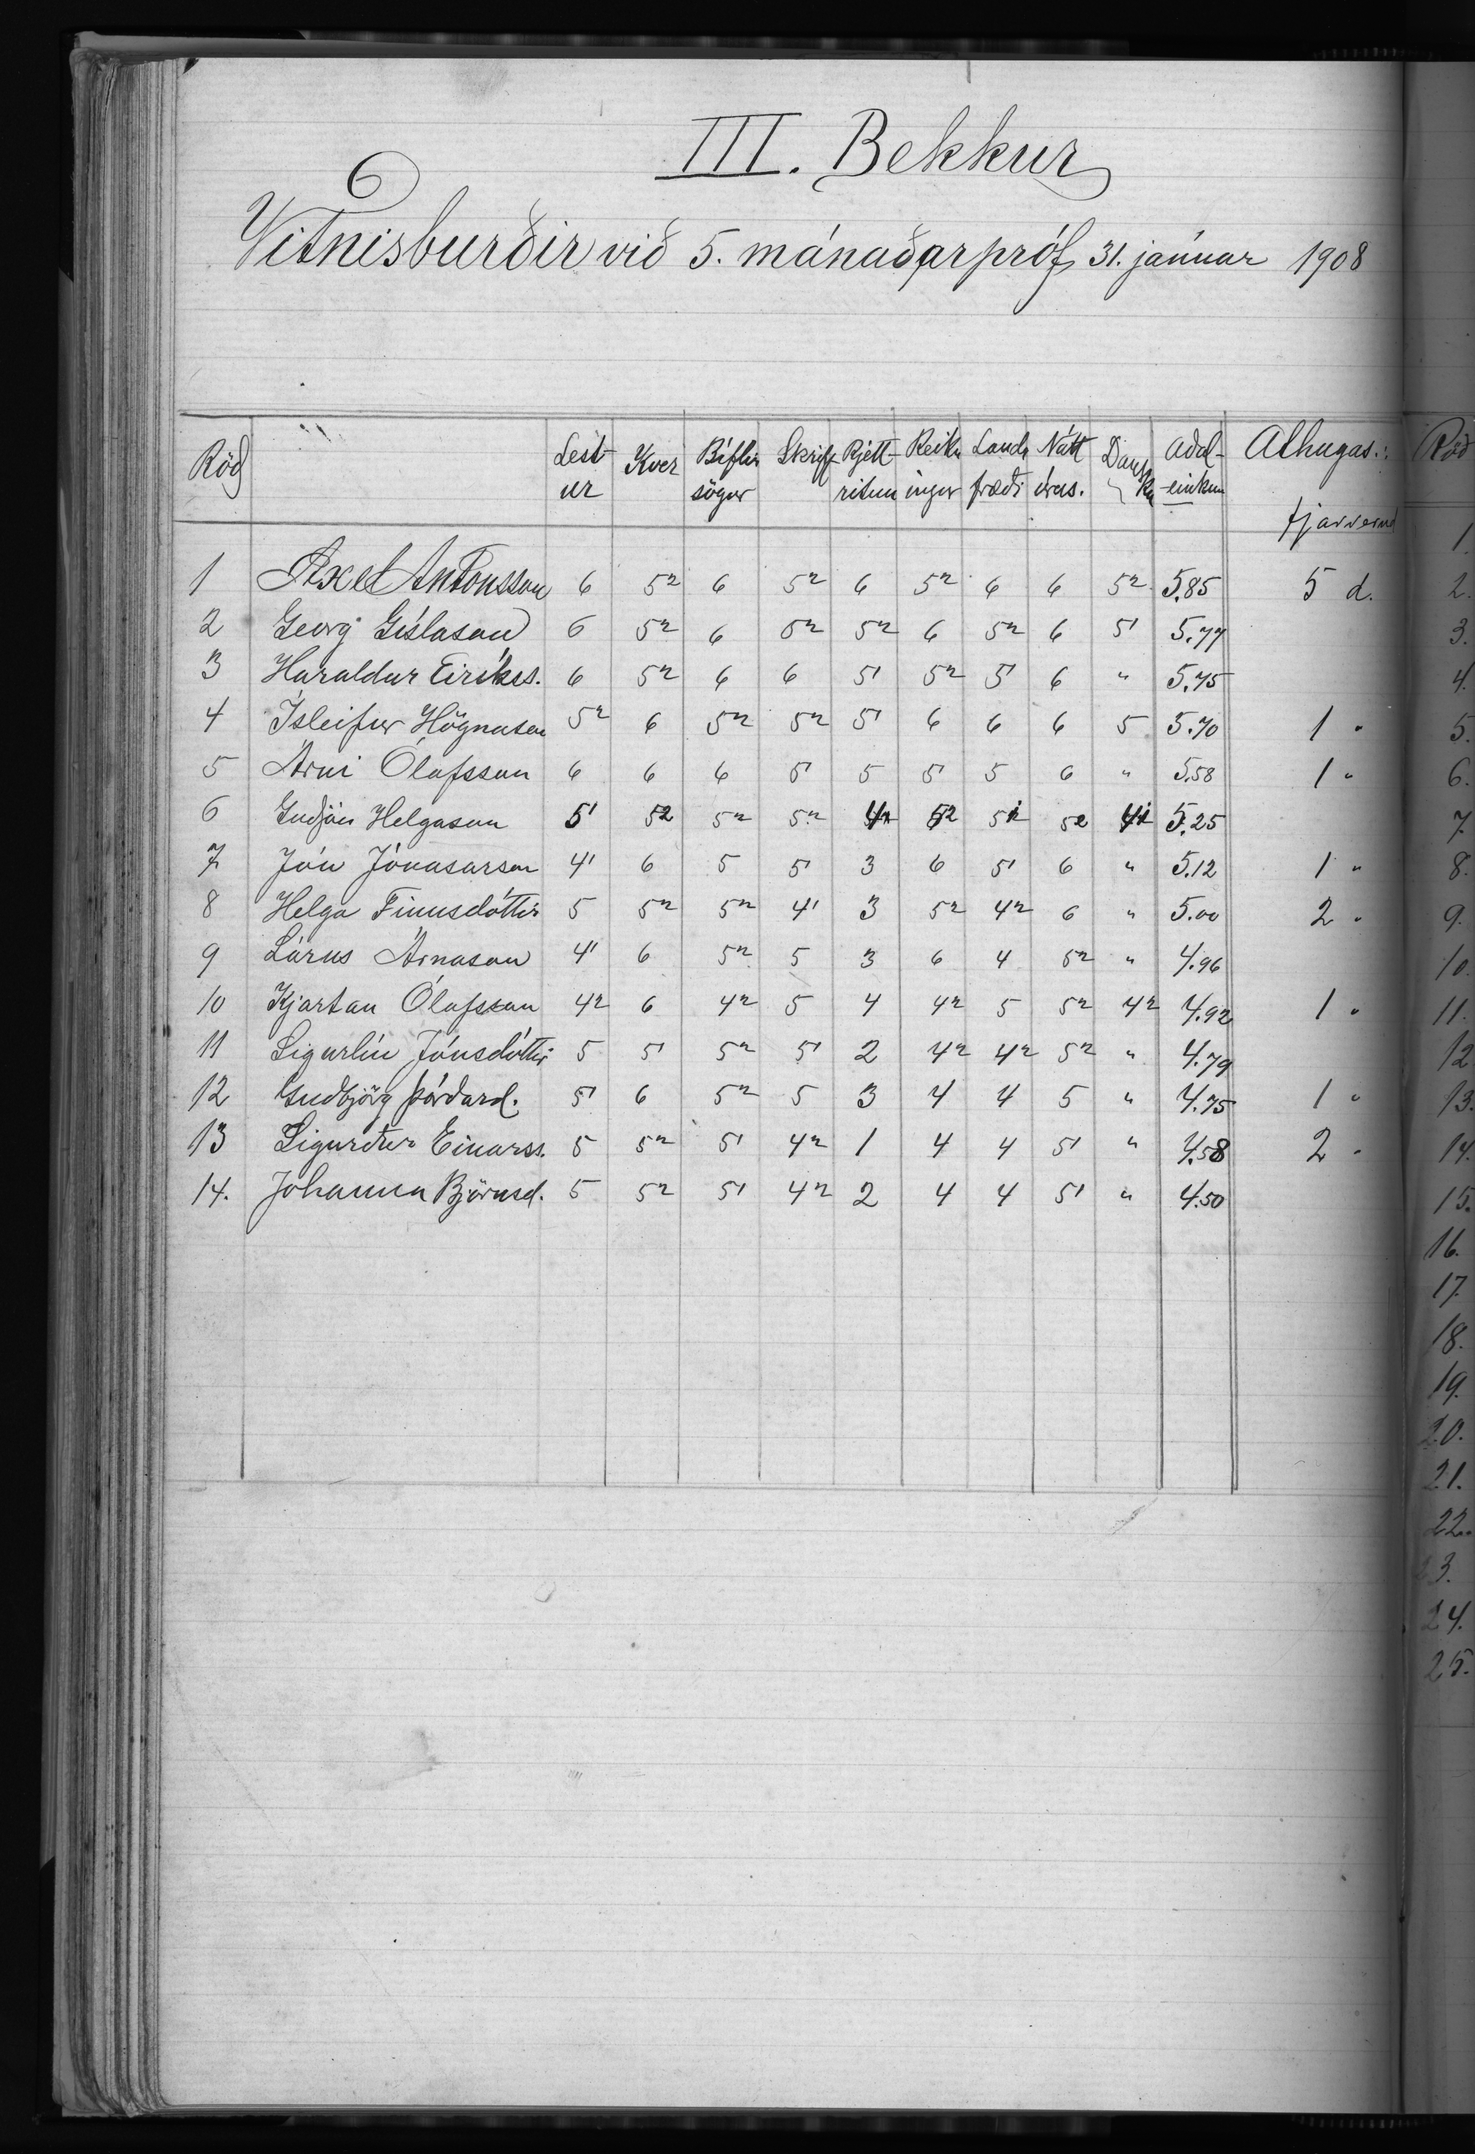 III. Bekkur
Vitnisburðir við 5. mánaðarpróf, 31. janúar 1908
Röð Lest- Kver Biflíu Skrift Rjett- Reikn Landa Nátt Dansk Aðal- Athugas.:
ur sögur ritun ingur fræði úrus. ka -einkun
fjarvera
1 Axel Antonsson 6 5² 6 5² 6 5² 6 6 5² 5.85 5 d.
2 Georg Gíslason 6 5² 6 5² 5² 6 5² 6 5¹ 5.77
3 Haraldur Eiríkss. 6 5² 6 6 5¹ 5² 5¹ 6 " 5.75
4 Ísleifur Högnason 5² 6 5² 5² 5¹ 6 6 6 5 5.70 1 "
5 Árni Ólafsson 6 6 6 5¹ 5 5¹ 5 6 " 5.58 1 "
6 Guðjón Helgason 5¹ 5² 5² 5² 4² 5² 5¹ 5² 4¹ 5.25
7 Jón Jónasarson 4¹ 6 5 5¹ 3 6 5¹ 6 " 5.12 1 "
8 Helga Finnsdóttir 5 5² 5² 4¹ 3 5² 4² 6 " 5.00 2 "
9 Lárus Árnason 4¹ 6 5² 5 3 6 4 5² " 4.96
10 Kjartan Ólafsson 4² 6 4² 5 4 4² 5 5² 4² 4.92 1 "
11 Sigurlín Jónsdóttir 5 5¹ 5² 5¹ 2 4² 4² 5² " 4.79
12 Guðbjörg Þórðard. 5¹ 6 5² 5 3 4 4 5 " 4.75 1 "
13 Sigurður Einarss. 5 5² 5¹ 4² 1 4 4 5¹ " 4.58 2 "
14. Jóhanna Björnsd. 5 5² 5¹ 4² 2 4 4 5¹ " 4.50
Röð
1.
2.
3.
4.
5.
6.
7.
8.
9.
10.
11.
12
13.
14.
15.
16.
17.
18.
19.
20.
21.
22.
23.
24.
25.